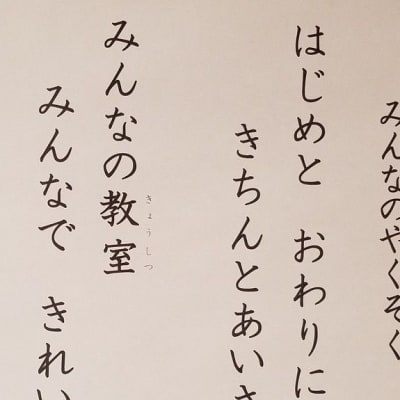 みんなのやくそく
はじめと おわりに
きちんとあいさ
みんなの教室
きょうしつ
みんなで きれい